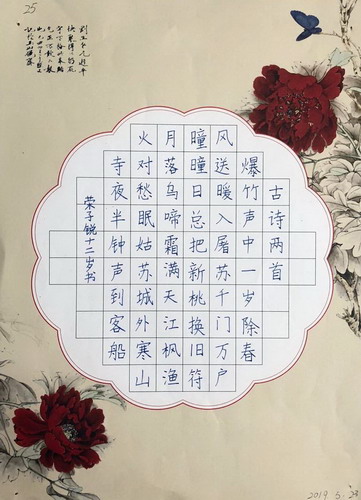 25
古诗两首
爆竹声中一岁除春
风送暖入屠苏千门万户
瞳瞳日总把新桃换旧符
月落乌啼霜满天江枫渔
火对愁眠姑苏城外寒山
寺夜半钟声到客船
荣子锐十二岁书
2019. 5. 23